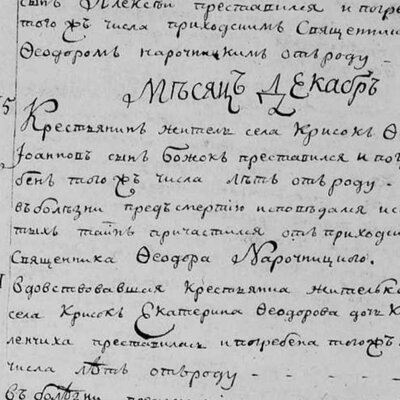 сынъ Алексѣй преставился и погре
того жъ числа приходскимъ Священник
Ѳеодоромъ Нарочницкимъ отъ роду -
Мѣсяцъ Декабрь
5 Крестьянинъ жителъ села Крисокъ Ѳ
Іоанновъ сынъ Божокъ преставился и пог
бенъ того жъ числа лѣтъ отъ роду -
въ болѣзни предъ смертію исповѣдался и с
тыхъ таинъ причастился отъ приходс
Священника Ѳеодора Нарочницкого.
вдовствовавшая Крестьянка жителька
села Крисокъ Екатерина Ѳеодорова дочь К
ленчиха преставилась и погребена того жъ
числа лѣтъ отъ роду - - - -
въ болѣзни